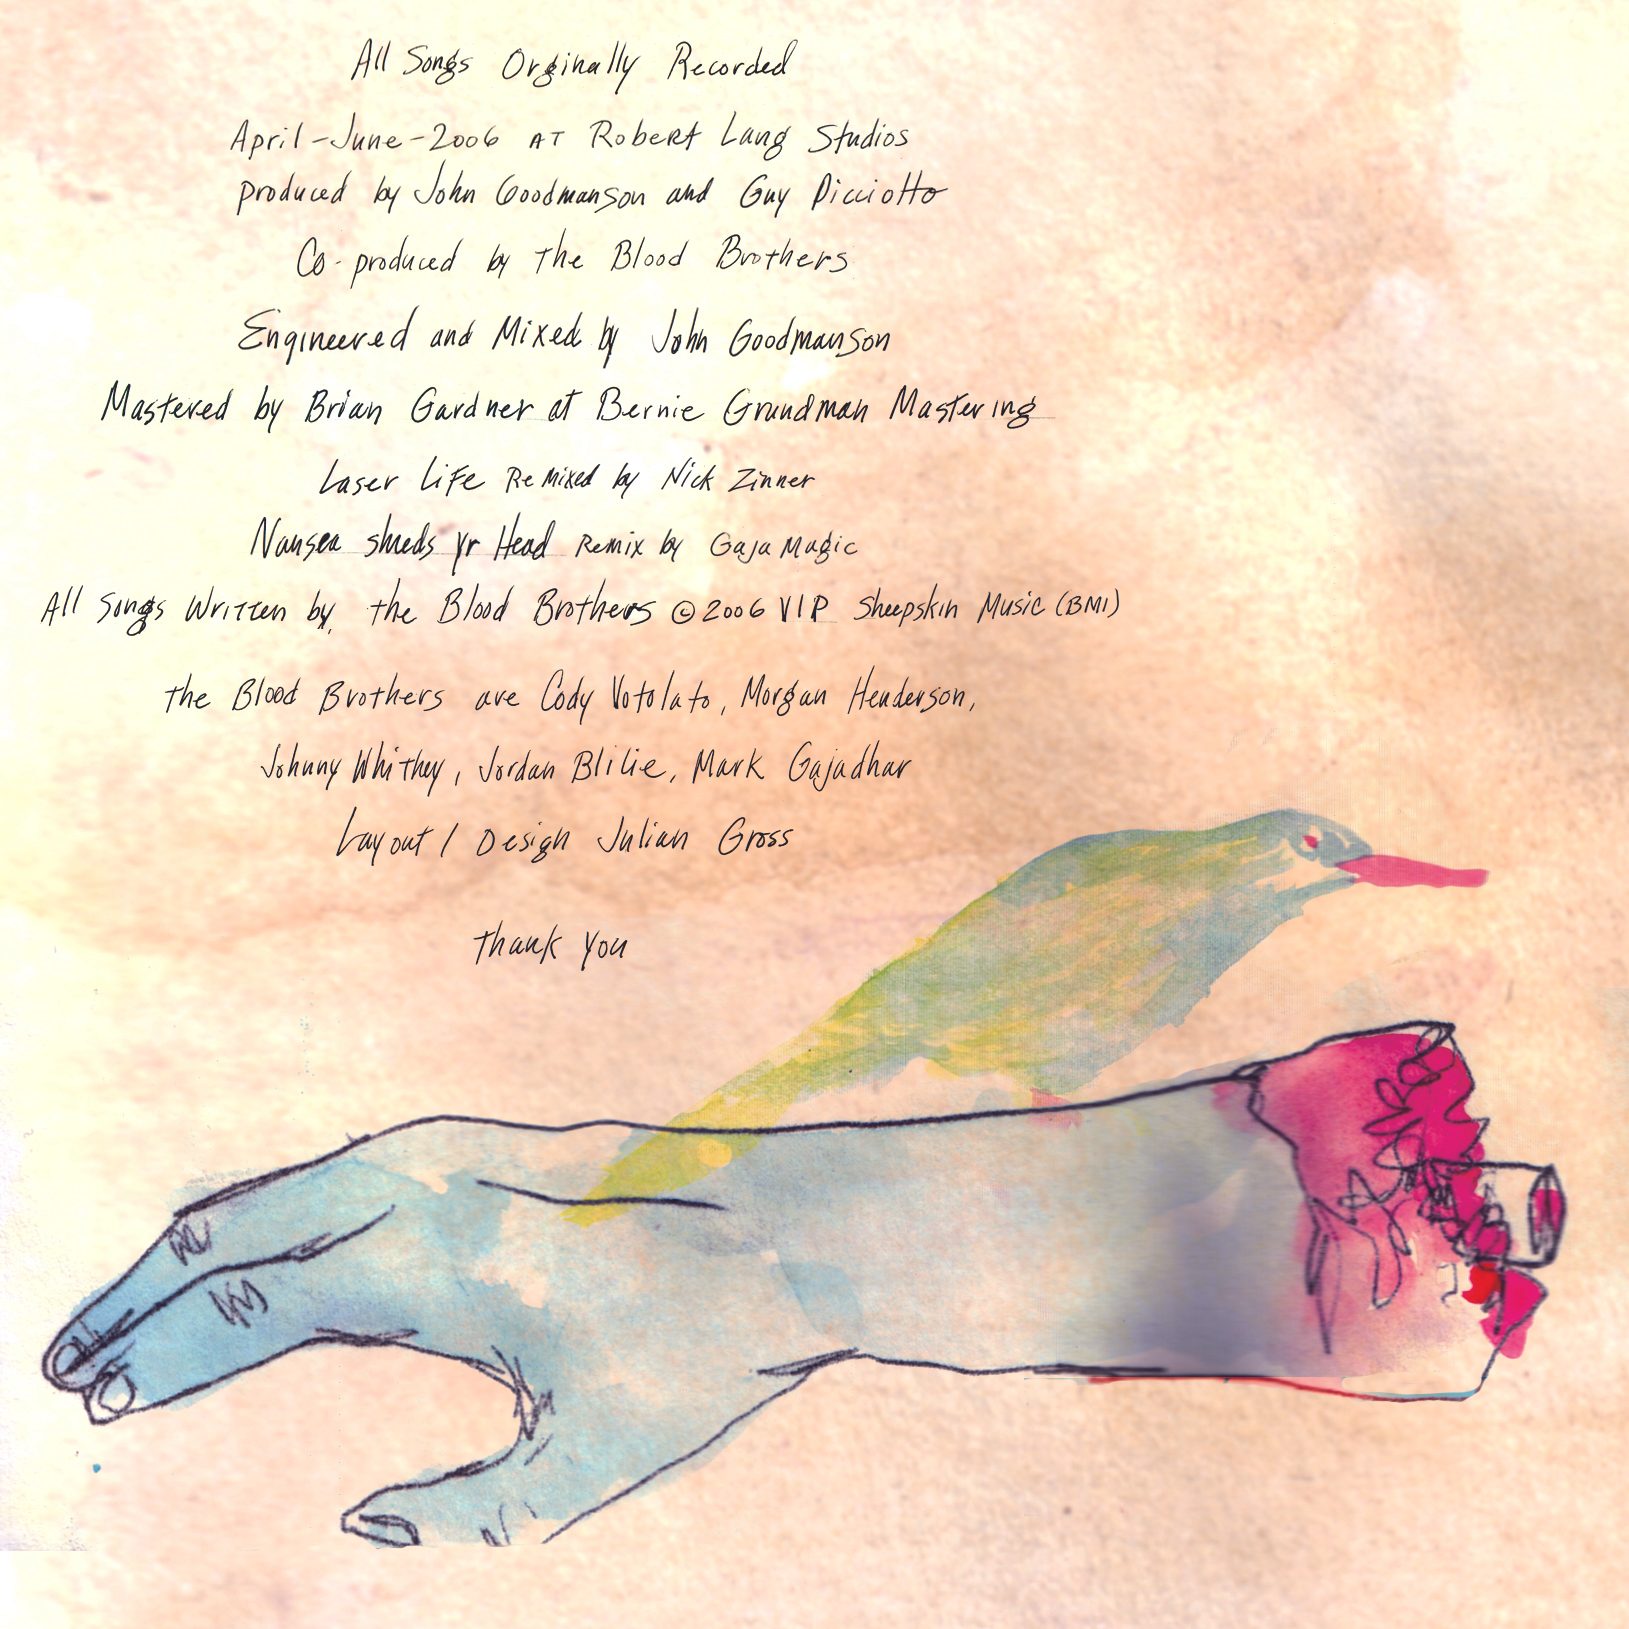 All Songs Orginally Recorded
April-June-2006 AT Robert Lang Studios
produced by John Goodmanson and Guy Picciotto
Co-produced by the Blood Brothers
Engineered and Mixed by John Goodmanson
Mastered by Brian Gardner at Bernie Grundman Mastering
Laser Life Remixed by Nick Zinner
Nausea shreds yr Head Remix by Gaja Magic
All songs Written by, the Blood Brothers © 2006 VIP Sheepskin Music (BMI)
the Blood Brothers are Cody Votolato, Morgan Henderson,
Johnny Whitney, Jordan Blilie, Mark Gajadhar
Layout / Design Julian Gross
thank you